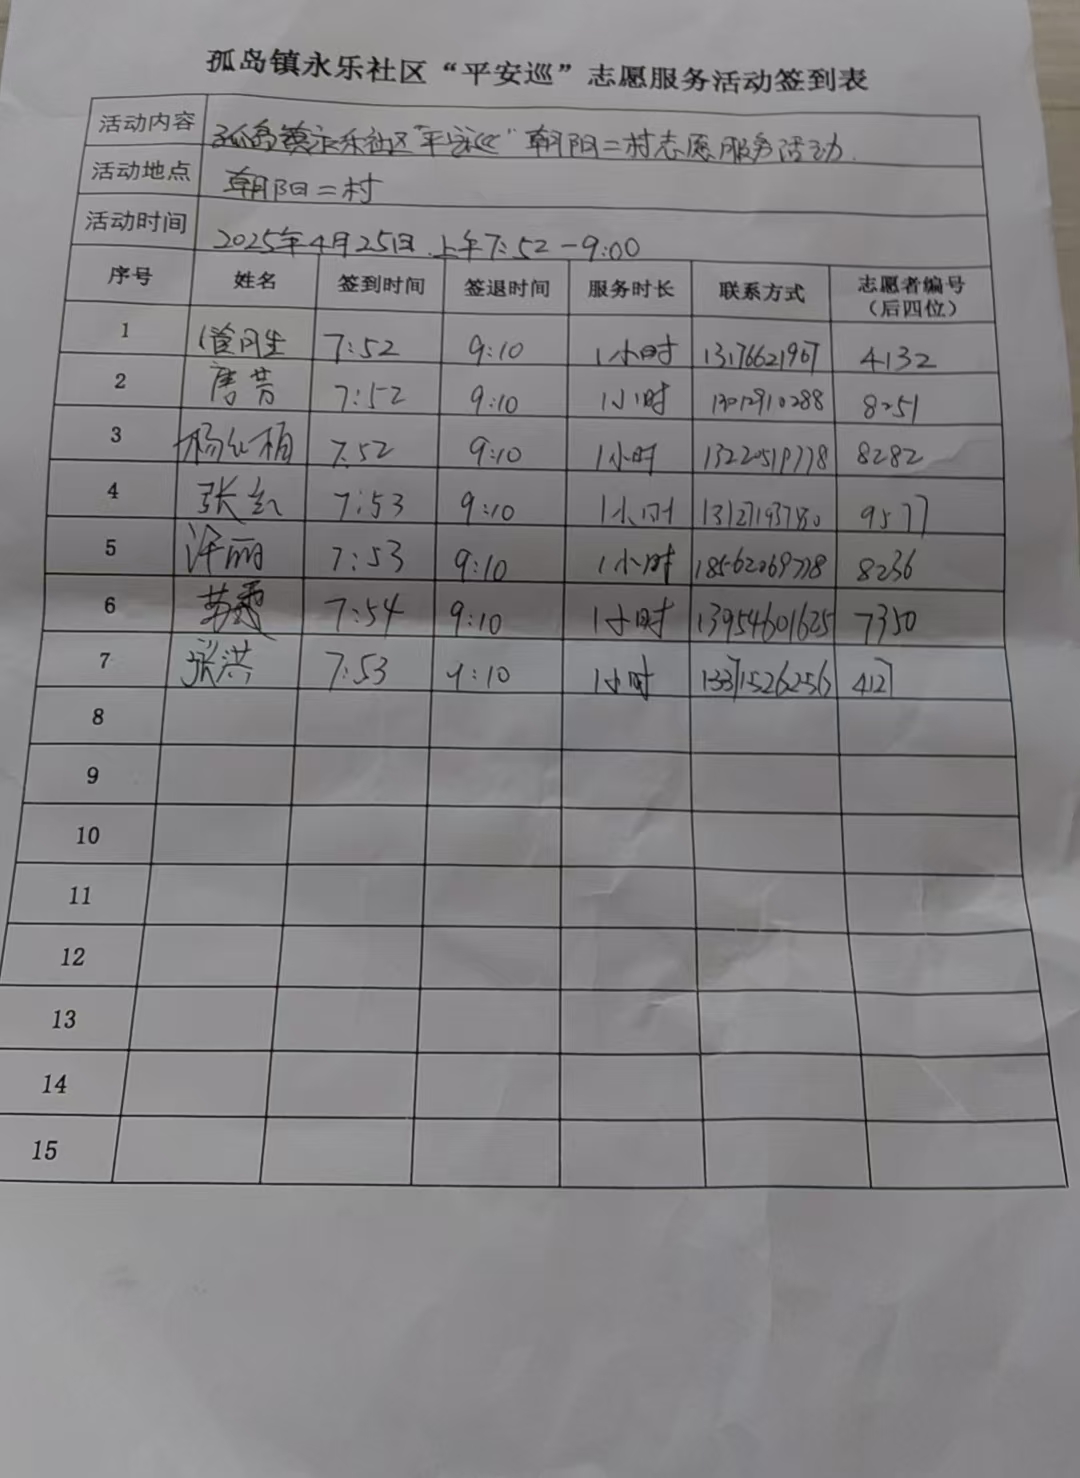 孤岛镇永乐社区“平安巡”志愿服务活动签到表
活动内容 孤岛镇永乐社区“平安巡”朝阳二村志愿服务活动.
活动地点 朝阳二村
活动时间 2025年4月25日.上午7:52-9:00
序号 姓名 签到时间 签退时间 服务时长 联系方式 志愿者编号（后四位）
1 7:52 9:10 1小时 13176621967 4132
2 唐芳 7:52 9:10 1小时 13012910288 8251
3 7:52 9:10 1小时 8282
4 张红 7:53 9:10 1小时 9577
5 7:53 9:10 1小时 8236
6 7:54 9:10 1小时 13954601625 7350
7 张洪 7:53 9:10 1小时 13371526256 4127
8
9
10
11
12
13
14
15